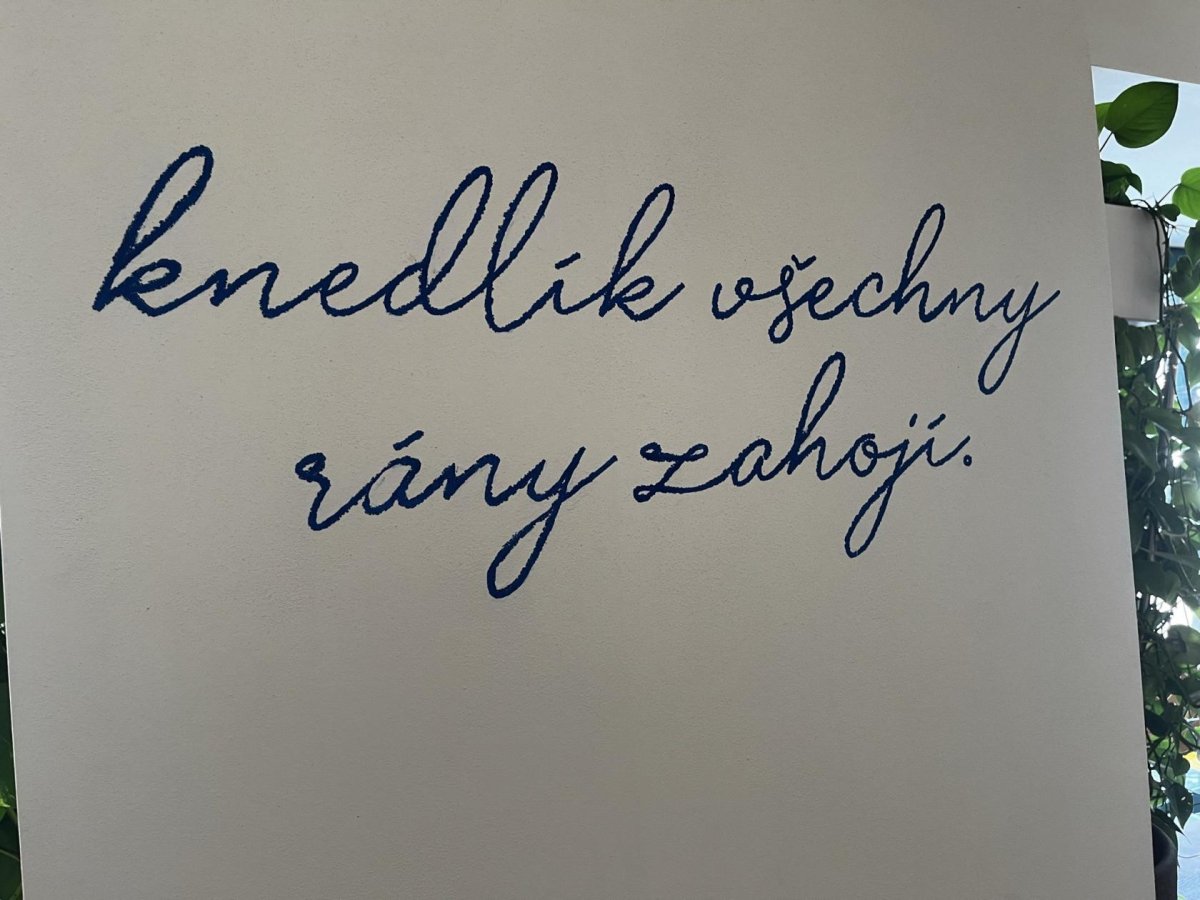 knedlík všechny
rány zahojí.